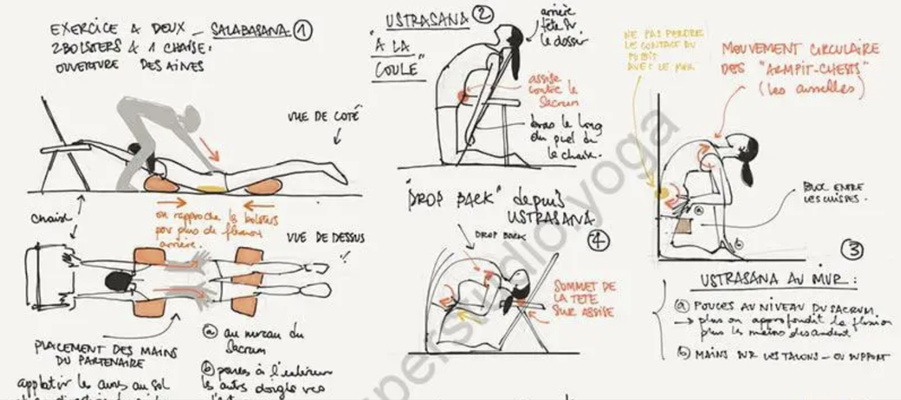 EXERCICE A DEUX _ SALABASANA: 1
2 BOLSTERS & 1 CHAISE:
OUVERTURE DES AINES
VUE DE COTÉ
chaise
on rapproche les bolsters
pour plus de flexion
arrière.
VUE DE DESSUS
PLACEMENT DES MAINS
DU PARTENAIRE
applatir les aines au sol
a au niveau du
Sacrum
b pouces à l'extérieur
les autres doigts vers
USTRASANA 2
"A LA
COULE"
arrière
tête sur
le dossir
assise
contre le
Sacrum
bras le long
du pied de
la chaise.
"DROP BACK" depuis
USTRASANA
4
DROP BACK
SOMMET DE
LA TETE
SUR ASSISE
NE PAS PERDRE
LE CONTACT DU
PUBIS
AVEC LE MUR
MOUVEMENT CIRCULAIRE
DES "ARMPIT-CHESTS"
(les aisselles)
a
b
BLOC ENTRE
LES CUISSES.
3
USTRASANA AU MUR:
a POUCES AU NIVEAU DU SACRUM.
→ plus on approfondit la flexion
plus les mains descendent
b MAINS SUR LES TALONS - OU SUPPORT
perstudio.yoga